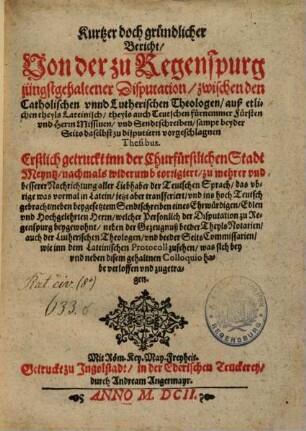 Kurtzer doch gründlicher
Bericht/
Von der zu Regenspurg
jüngstgehaltener Disputation/ zwischen den
Catholischen vnnd Lutherischen Theologen/ auß etli-
chen theyls Lateinisch/ theyls auch Teutschen fürnemmer Fürsten
vnd Herrn Missiuen/ vnd Sendschreiben/ sampt beyder
Seits daselbst zu disputiern vorgeschlagnen
Thesibus.
Erstlich getruckt inn der Churfürstlichen Stadt
Meyntz/ nachmals widerumb corrigiert/ zu mehrer vnd
besserer Nachrichtung aller Liebhaber der Teutschen Sprach/ das vb-
rige was vormal in Latein/ jetzt aber transferiert/ vnd ins hoch Teutsch
gebracht: neben beygesetztem Sendschreiben eines Ehrwürdigen/ Edlen
vnd Hochgelehrten Herrn/ welcher Persönlich der Disputation zu Re-
genspurg beygewohnt/ neben der Bezeugnuß becher Theyls Notarien/
auch der Lutherischen Theologen/ vnd beeder Seits Commissarien/
wie inn dem Lateinischen Protocoll zusehen/ was sich bey
vnd neben disem gehaltnen Colloquio ha-
be verloffen vnd zugetra-
gen.
Rat. civ. (8º)
633.
Mit Röm. Key. May. Freyheit.
Getruckt zu Ingolstadt/ in der Ederischen Truckerey/
durch Andream Angermayr.
ANNO M. DCII.